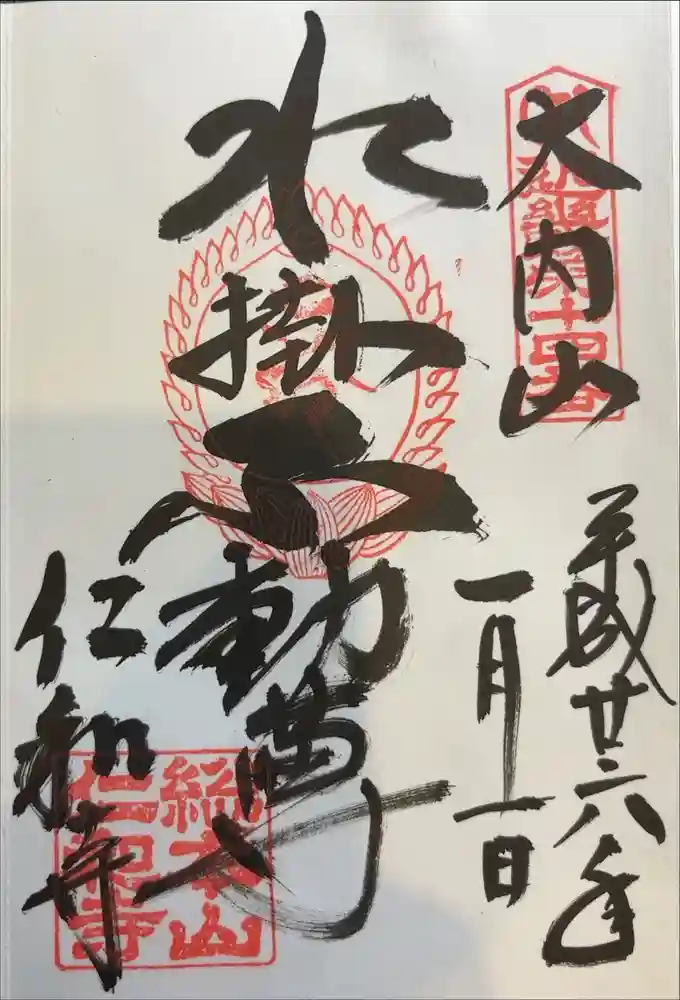 大内山
平成廿六年
一月一日
水掛不動尊
仁和寺
第十四番
總本山
仁和寺